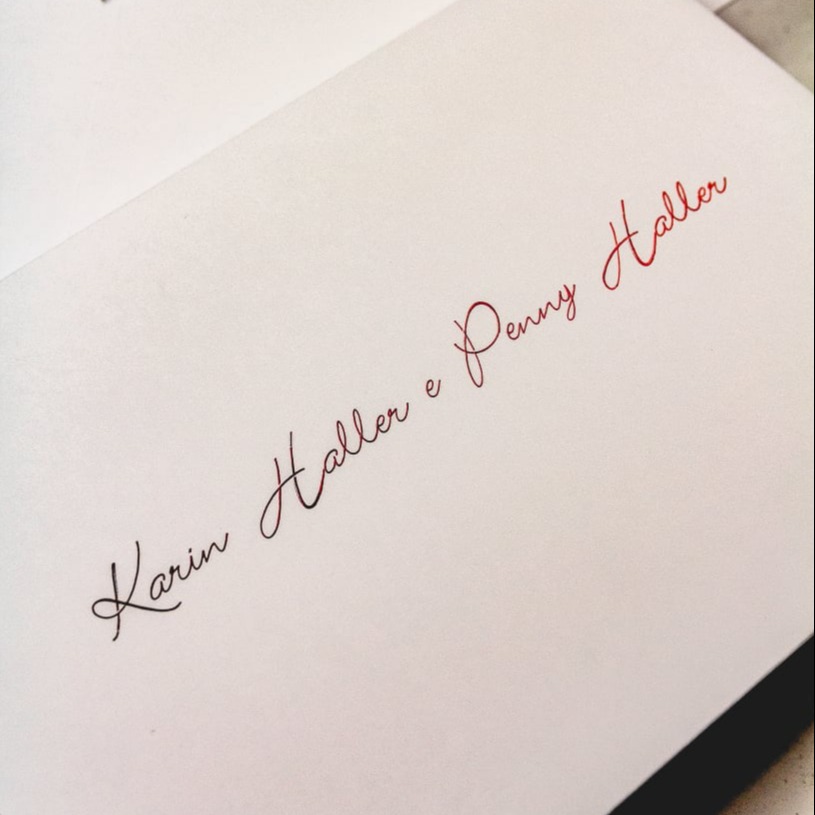 Karin Haller e Penny Haller